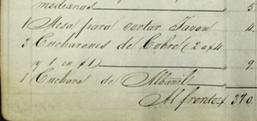 medianas 5.
1 Mesa para cortar Javon 4.
3 Cucharones de Cobre (2 a $4
y 1 en $1) 9.
1 Cuchara de Albañil
Al frente $ 370.